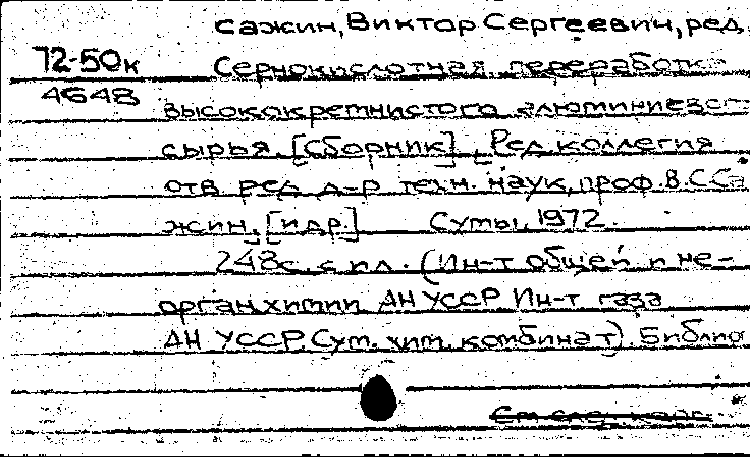 Сажин, Виктор Сергеевич, ред.
72-50к Сернокислотная переработк
4648
высококремнистого алюминиевог
сырья. [Сборник]. [Ред. коллегия
отв. ред. д-р техн. наук, проф. В.С.Са
жин, [и др.] Сумы, 1972.
248с. с ил. (Ин-т общей и не-
орган. химии АН УССР. Ин-т газа
АН УССР. Сум. хим. комбинат). Библиог
См. след. карт.